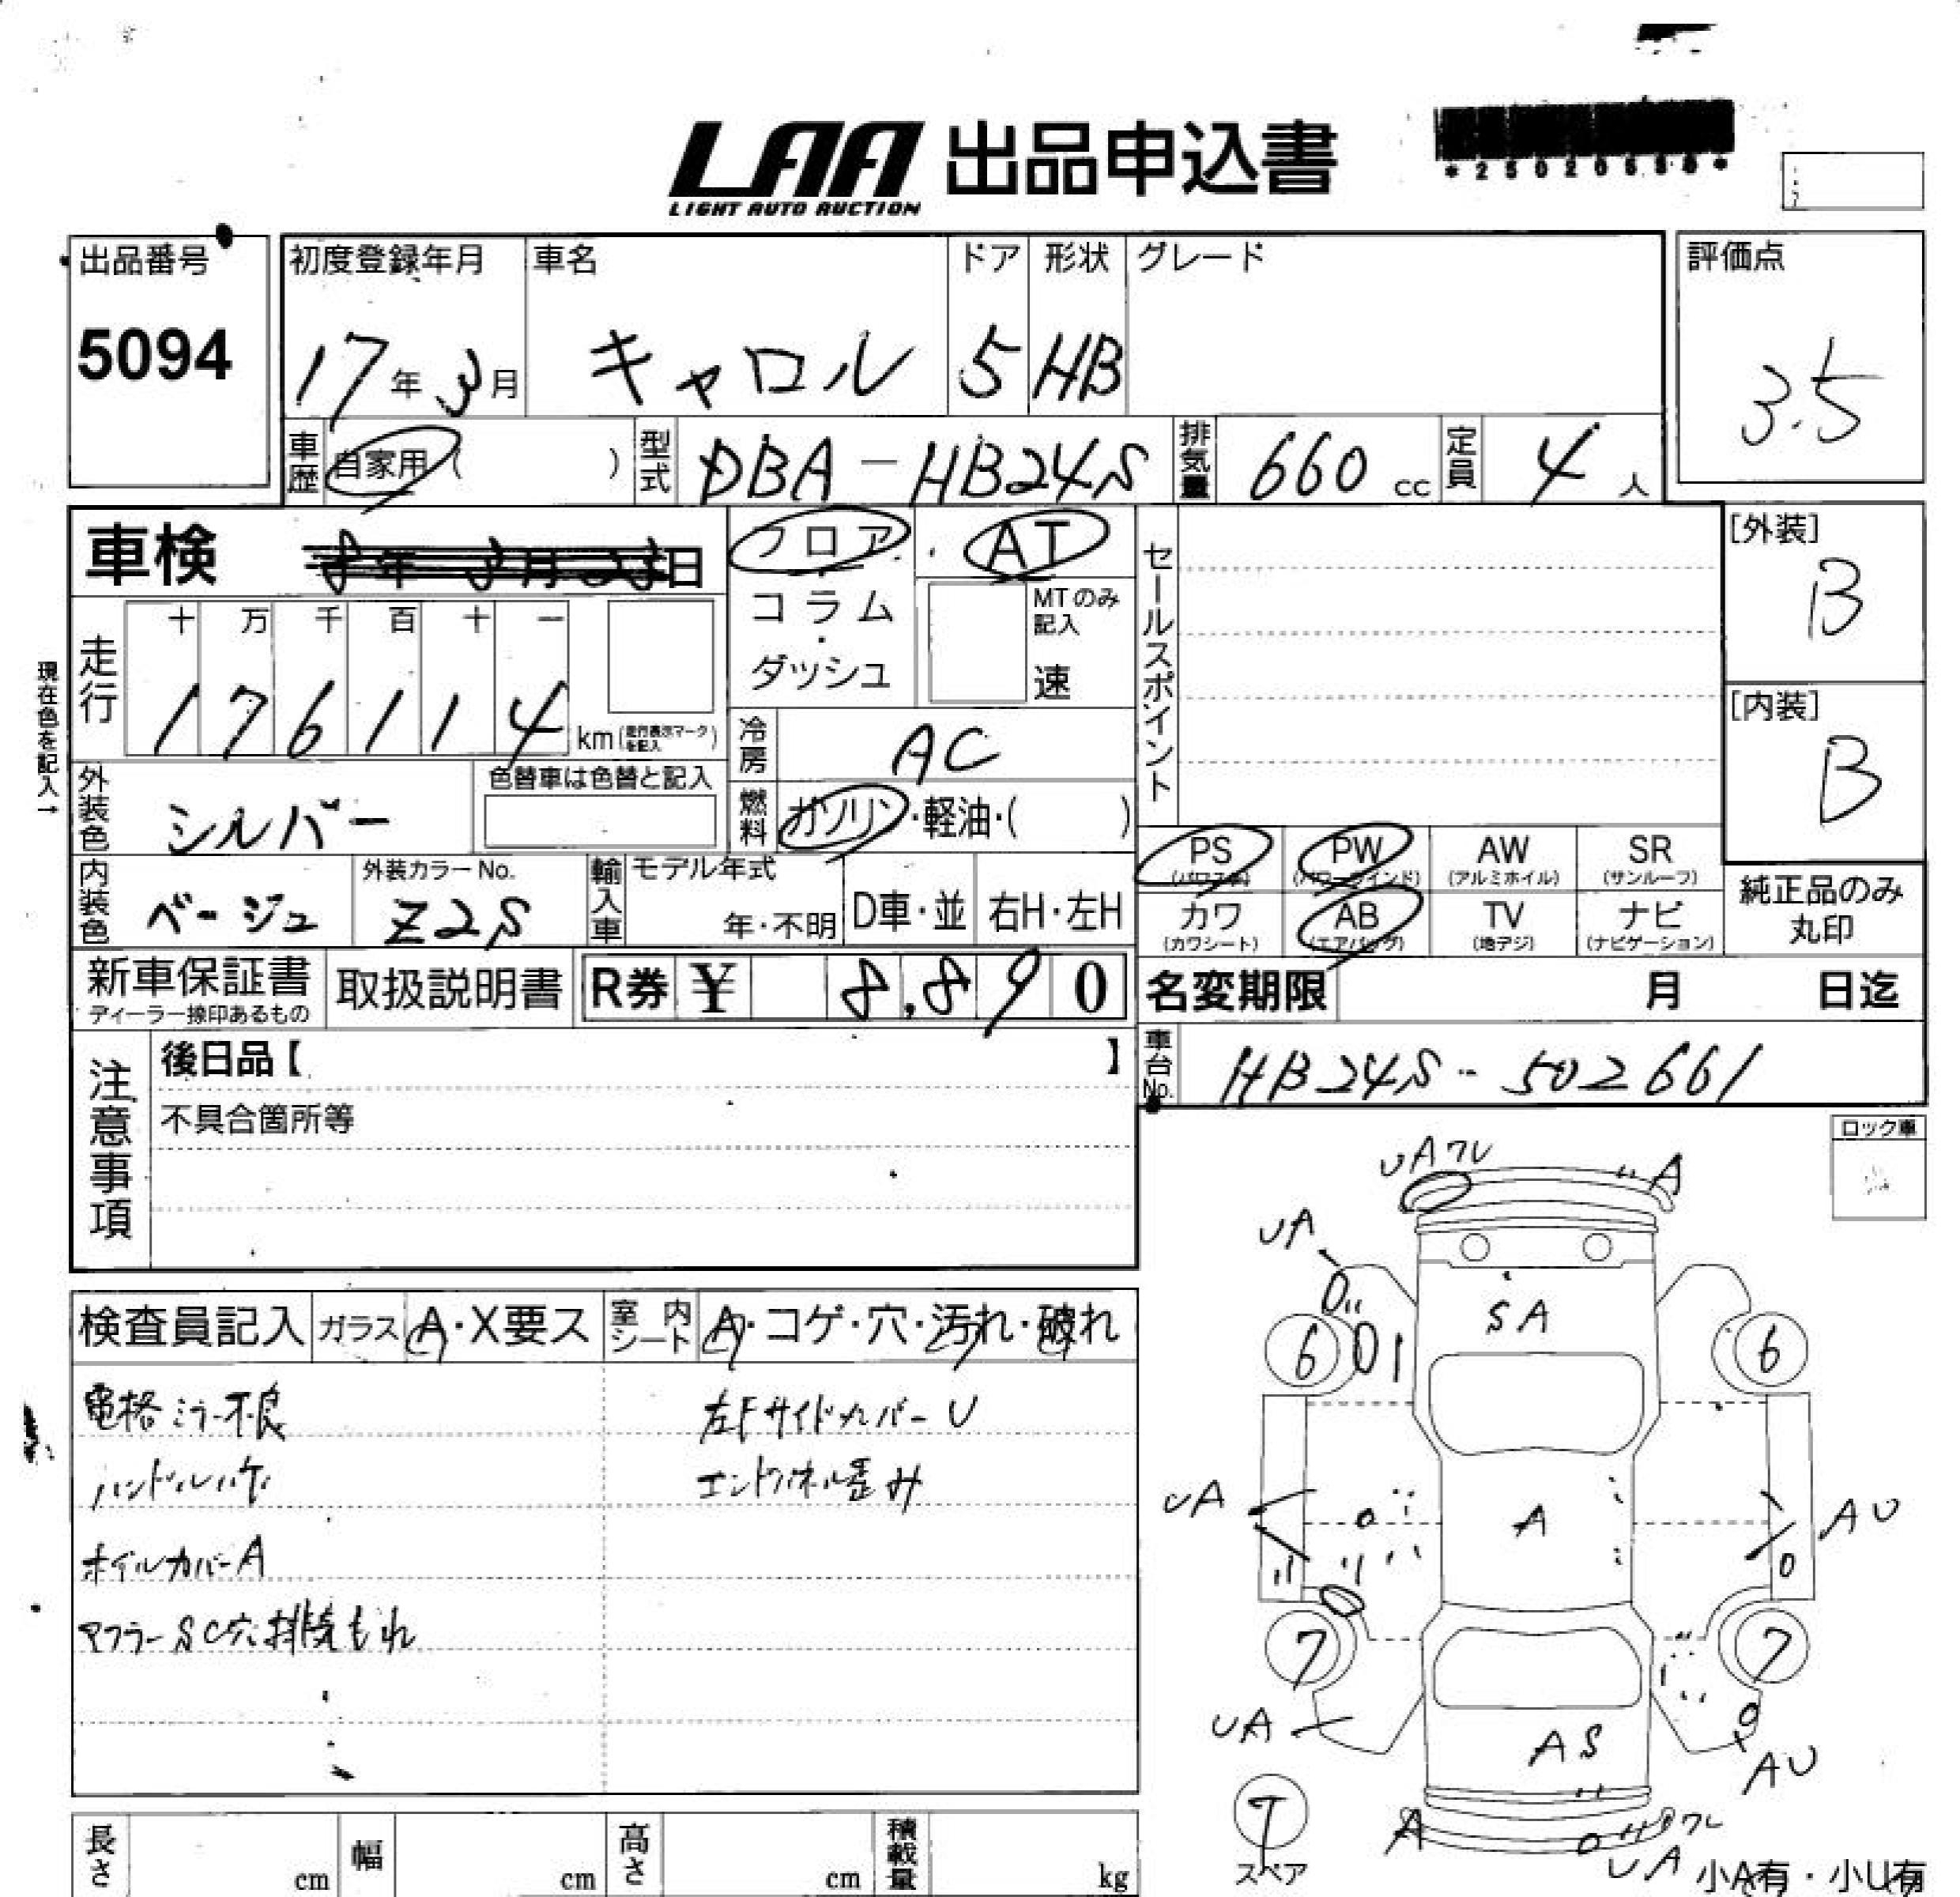 LAA 出品申込書
LIGHT AUTO AUCTION
出品番号
5094
初度登録年月 車名 ドア 形状 グレード
17年3月 キャロル 5 HB
評価点
3.5
車歴 自家用( ) 型式 DBA-HB24S 排気量 660 cc 定員 4 人
車検 8年3月23日
フロア・AT
コラム・
ダッシュ
MTのみ記入
速
セールスポイント
[外装]
B
[内装]
B
現在色を記入→
走行 十 万 千 百 十 一
1 7 6 1 1 4 km(走行表示マークを記入)
冷房 AC
外装色 シルバー 色替車は色替と記入
燃料 ガソリン・軽油・( )
内装色 ベージュ 外装カラーNo. Z2S
輸入車 モデル年式 年・不明 D車・並 右H・左H
PS (パワステ) PW (パワーウインド) AW (アルミホイル) SR (サンルーフ)
カワ (カワシート) AB (エアバッグ) TV (地デジ) ナビ (ナビゲーション)
純正品のみ
丸印
新車保証書 取扱説明書 R券 ¥ 8,890
ディーラー捺印あるもの
名変期限 月 日迄
車台No. HB24S-502661
注意事項
後日品【 】
不具合箇所等
ロック車
検査員記入 ガラス A・X要ス 室内シート A・コゲ・穴・汚れ・破れ
電格ミラー不良 左Fサイドカバー U
ハンドルハゲ エンドパネル歪み
ホイルカバーA
マフラーSC穴排気もれ
UAワレ A
UA
SA
6 6
UA A AU
7 7
UA AS AU
T
スペア
A ワレ
UA
小A有・小U有
長さ cm 幅 cm 高さ cm 積載量 kg